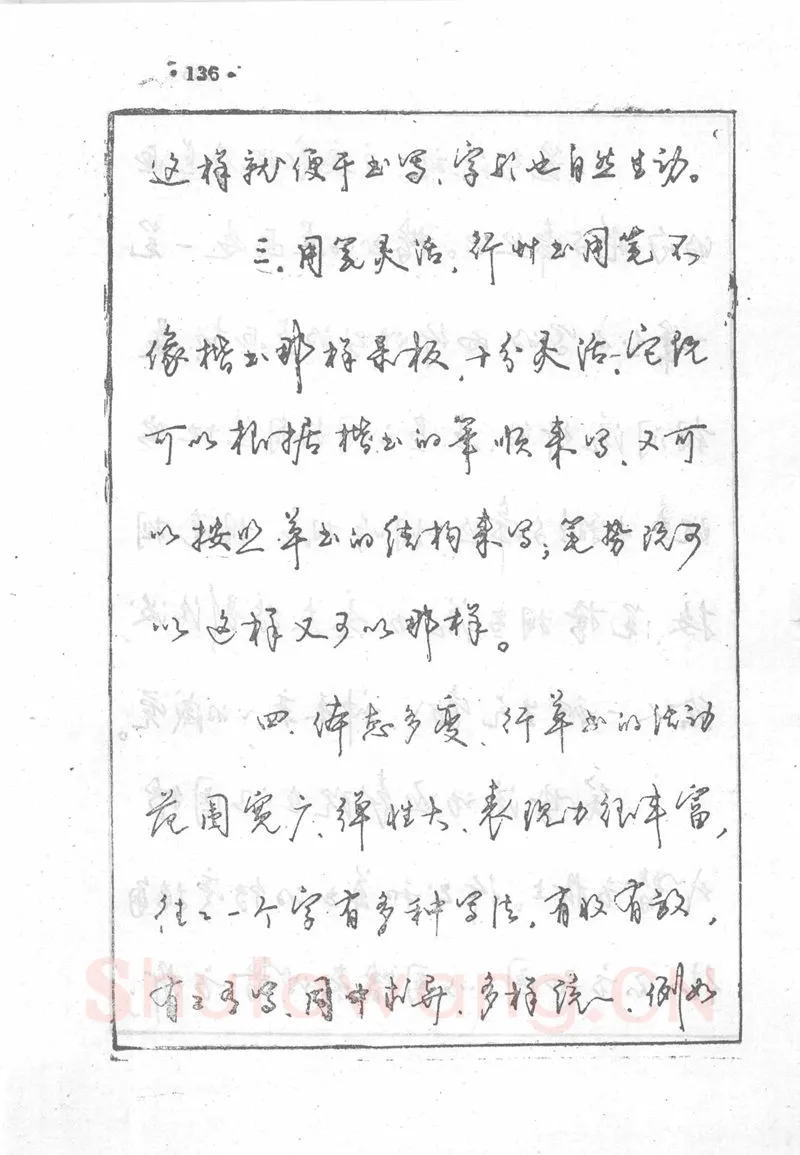 ·136·
这样就便于书写、字形也自然生动。
三、用笔灵活，行草书用笔不
像楷书那样呆板，十分灵活，它既
可以根据楷书的笔顺来写、又可
以按照草书的结构来写；笔势既可
以这样又可以那样。
四、体态多变、行草书的活动
范围宽广、弹性大、表现力很丰富，
往往一个字有多种写法，有收有放，
有写、同中求异、多样统一、例如
Shufawang.CN